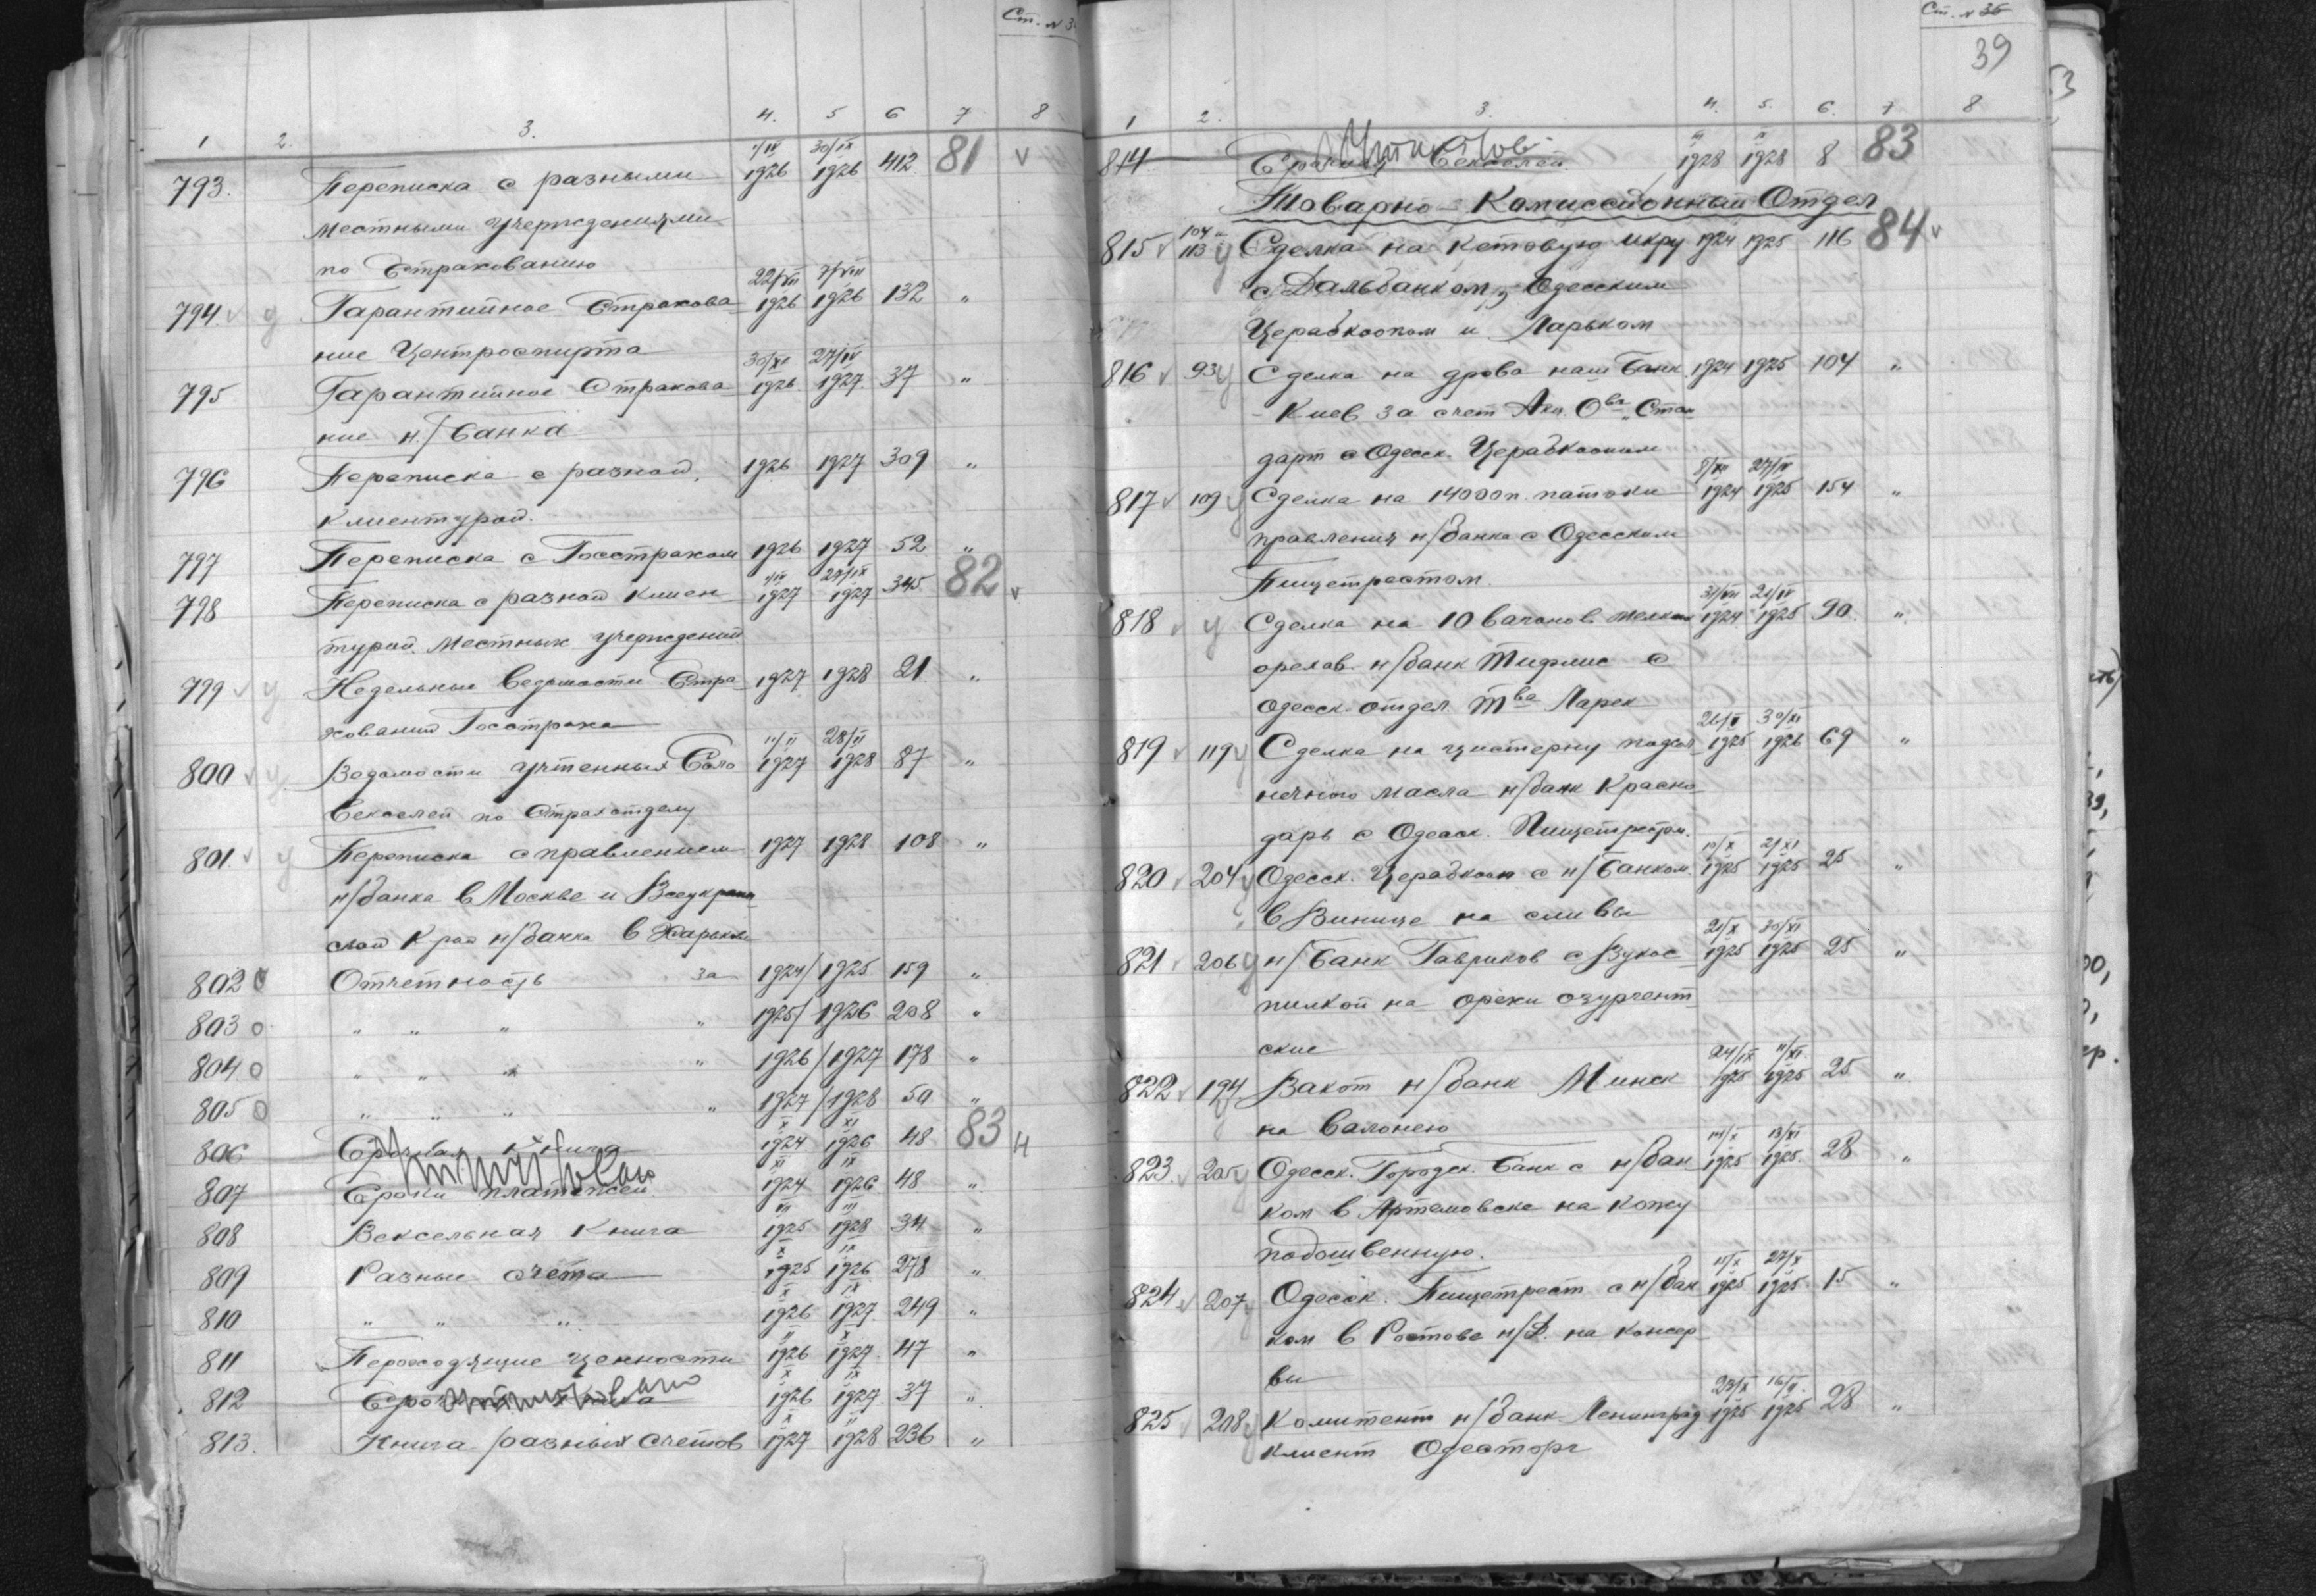 Ст. N 3
1 2. 3. 4. 5 6 7 8
793. Переписка с разными 1/IV 1926 30/IX 1926 412 81 v
местными учреждениями
по Страхованию
794. v у Гарантийное Страхова- 22/VII 1926 7/VIII 1926 132 "
ние Центроспирта
795 Гарантийное Страхова- 30/XI 1926. 27/IV 1927 37 "
ние н/Банка
796 Переписка с разной 1926 1927 309 "
клиентурой.
797 Переписка с Госстрахом 1926 1927 52 "
798 Переписка с разной клиен- 1927 27/IX 1927 345 82 v
турой местных учреждений
799 v у Недельные ведомости Стра- 1927 1928 21. "
хований Госстраха
800 v у Ведомости учтенных Соло 11/II 1927 28/II 1928 87 "
векселей по Страхотделу
801. v у Переписка с правлением 1927 1928 108 "
н/банка в Москве и Всеукраин
ской К рой н/банка в Харькове
802 0 Отчетность за 1924/1925 159 "
803 0 " " " " 1925/1926 208 "
804 0 " " " " 1926/1927 178 "
805 0 " " " " 1927/1928 50 "
806 Срочная книга X 1924 XI 1926 48 83 н
807 Сроки платежей XI 1924 IX 1926 48 "
808 Вексельная Книга VII 1925 III 1928 34 "
809 Разные счета X 1925 IX 1926 278 "
810 " " " X 1926 IX 1927. 249 "
811 Переходящие ценности II 1926 X 1927 47 "
812 Срочная книга X 1926 IX 1927 37 "
813. Книга разных счетов X 1927 II 1928 236 "
Ст. N 35
39
1 2. 3. 4. 5. 6. 7 8
814 Срочная Векселей III 1928 1928 8 83
Товарно-Комиссионный Отдел
815 v 104-113 у Сделка на кетовую икру 1924 1925 116 84 v
с Дальбанком, Одесским
Церабкоопом и Ларьком
816 v 93 у Сделка на дрова наш Банк 1924 1925 104 "
- Киев за счет Акц. Ова "Стан
дарт с Одесск. Церабкоопом
817 v 109 у Сделка на 14000 п. патоки 8/XII 1924 27/IV 1925 154 "
правления н/банка с Одесским
Пищетрестом.
818 v у Сделка на 10 вагонов мелких 31/VII 1924 21/IV 1925 90. "
орехов н/банк Тифлис с
Одесск. отдел. Тва Ларек
819 v 119 у Сделка на цистерну подсол 1925 30/XI 1926 69 "
нечного масла н/банк Красно
дарь с Одесск. Пищетрестом.
820 v 204 у Одесск. Церабкооп с н/Банком 10/X 1925 21/XI 1925 25 "
в Винице на сливы
821 v 206 у н/Банк Гавриков с Вукос 21/X 1925 30/XI 1925 25 "
пилкой на орехи озургент
ские
822 v 194. у Вакот н/банк Минск 24/IX 1925 11/XI 1925 25 "
на валонею
823. v 205 у Одесск. Городск. Банк с н/бан 14/X 1925 13/XI 1925. 28 "
ком в Артемовске на кожу
подошвенную.
824 v 207 у Одесск. Пищетрест с н/бан 15/X 1925 27/X 1925 15 "
ком в Ростове н/Д. на консер
вы
825 v 208 у Комитент н/банк Ленинград 23/X 1925 1925 28 "
клиент Одесторг